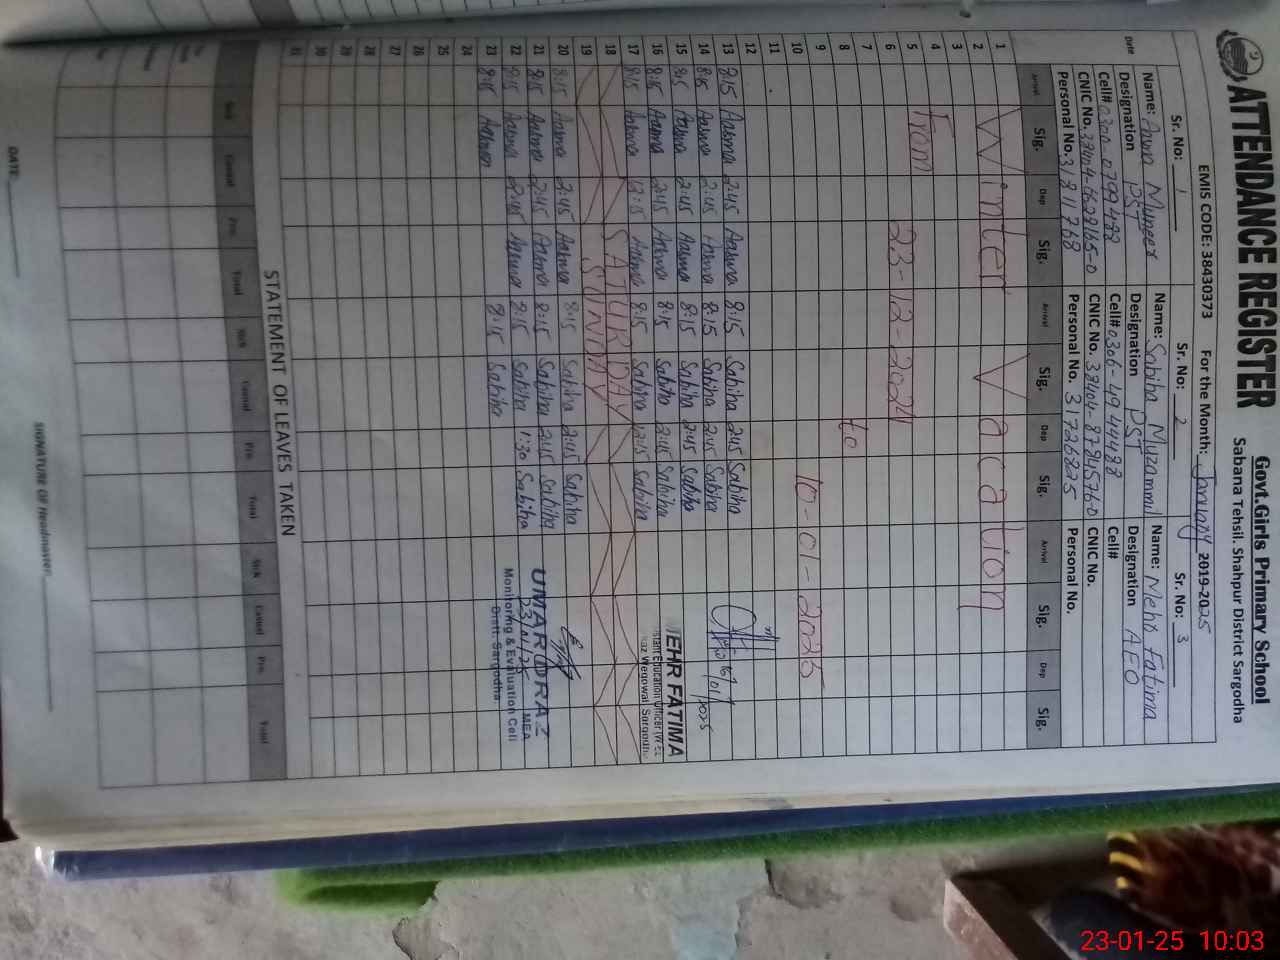 ATTENDANCE REGISTER
Govt.Girls Primary School
Sabana Tehsil. Shahpur District Sargodha
EMIS CODE: 38430373 For the Month: January 2019-2025
Sr. No: 1 Sr. No: 2 Sr. No: 3
Name: Asma Muneer Name: Sabiha Muzammil Name: Mehr Fatima
Designation PST Designation PST Designation AEO
Cell# 0300-0799488 Cell# 0306-4944488 Cell#
CNIC No. CNIC No. CNIC No.
Personal No. 31811768 Personal No. 31726825 Personal No.
Date Arrival Sig. Dep Sig. Arrival Sig. Dep Sig. Arrival Sig. Dep Sig.
1
2 Winter Vacation
3
4 From
5
6 23-12-2024
7
8 to
9
10 10-01-2025
11
12
13 8:15 Aasma 2:45 Aasma 8:15 Sabiha 2:45 Sabiha
14 8:15 Aasma 2:45 Aasma 8:15 Sabiha 2:45 Sabiha
15 8:15 Aasma 2:45 Aasma 8:15 Sabiha 2:45 Sabiha
16 8:15 Aasma 2:45 Aasma 8:15 Sabiha 2:45 Sabiha
17 8:15 Aasma 12:15 Aasma 8:15 Sabiha 12:15 Sabiha
18 SATURDAY
19 SUNDAY
20 8:15 Aasma 2:45 Aasma 8:15 Sabiha 2:45 Sabiha
21 8:15 Aasma 2:45 Aasma 8:15 Sabiha 2:45 Sabiha
22 8:15 Aasma 2:45 Aasma 8:15 Sabiha 1:30 Sabiha
23 8:15 Aasma 8:15 Sabiha
24
25
26
27
28
29
30
31
EHR FATIMA
stant Education Officer
Sargodha
UMAR DRAZ
MEA
23/01/25
Monitoring & Evaluation Cell
Distt. Sargodha
STATEMENT OF LEAVES TAKEN
Sick Casual Pre. Total Sick Casual Pre. Total Sick Casual Pre. Total
DATE: SIGNATURE OF Headmaster
23-01-25 10:03